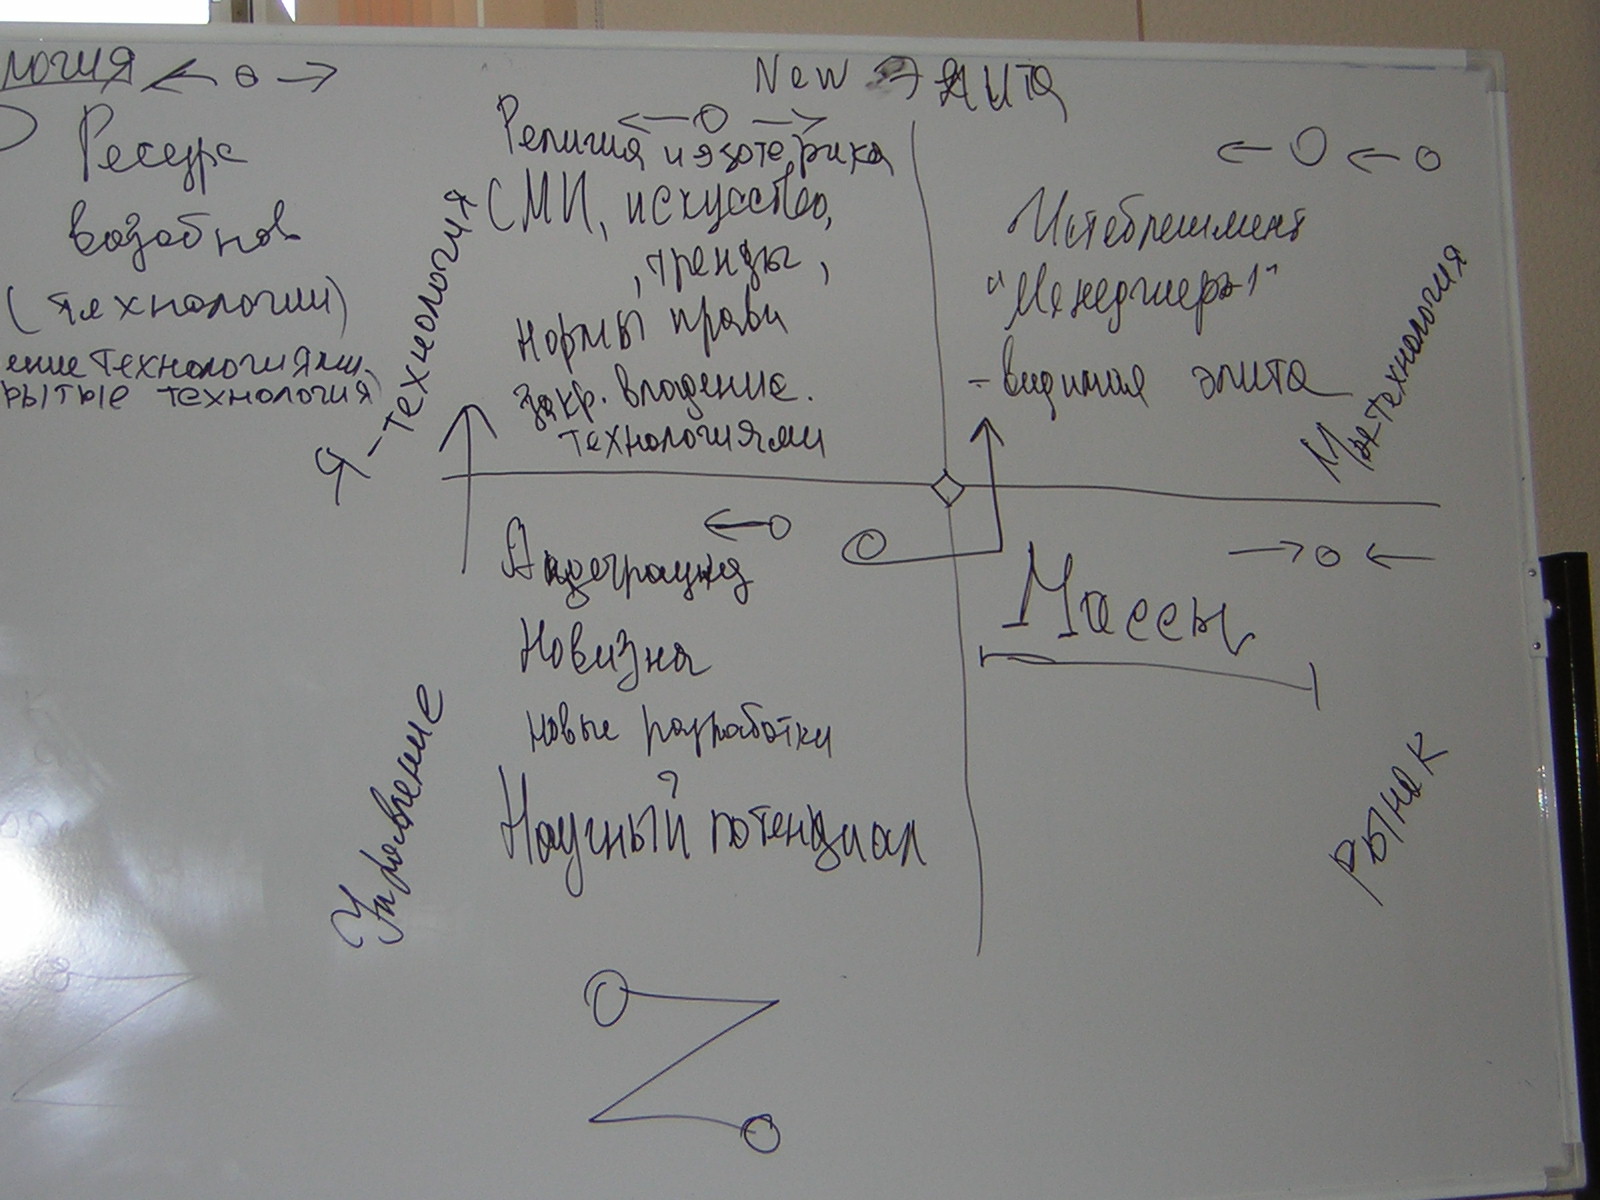 логия
New Элита
Ресурс
возобнов
(технологии)
ение технологиями
рытые технология)
Я-технология
Религия и эзотерика
СМИ, искусство,
, тренды,
нормы прави
закр. владение.
технологиями
Истеблешмент
"Менеджеры"
- видимая элита
Мы-технология
Андеграунд
Новизна
новые разработки
Научный потенциал
Массы
Управление
Рынок